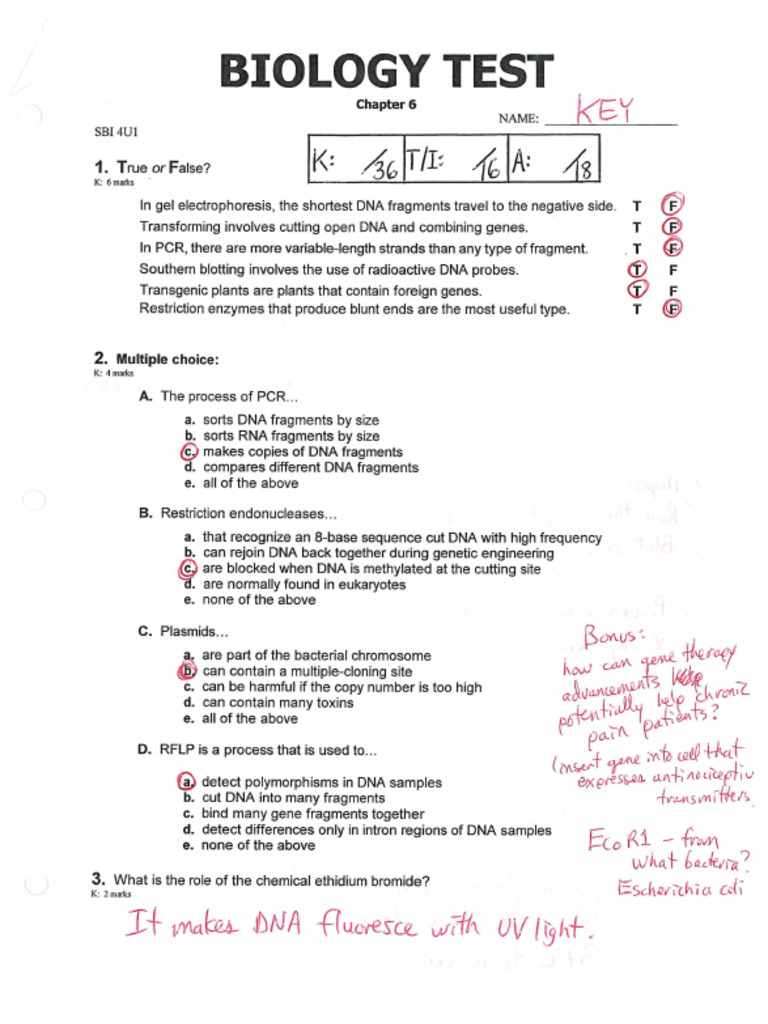 BIOLOGY TEST
Chapter 6
NAME: KEY
SBI 4U1
K: /36 T/I: /16 A: /18
1. True or False?
K: 6 marks
In gel electrophoresis, the shortest DNA fragments travel to the negative side. T F
Transforming involves cutting open DNA and combining genes. T F
In PCR, there are more variable-length strands than any type of fragment. T F
Southern blotting involves the use of radioactive DNA probes. T F
Transgenic plants are plants that contain foreign genes. T F
Restriction enzymes that produce blunt ends are the most useful type. T F
2. Multiple choice:
K: 4 marks
A. The process of PCR...
a. sorts DNA fragments by size
b. sorts RNA fragments by size
c. makes copies of DNA fragments
d. compares different DNA fragments
e. all of the above
B. Restriction endonucleases...
a. that recognize an 8-base sequence cut DNA with high frequency
b. can rejoin DNA back together during genetic engineering
c. are blocked when DNA is methylated at the cutting site
d. are normally found in eukaryotes
e. none of the above
C. Plasmids...
a. are part of the bacterial chromosome
b. can contain a multiple-cloning site
c. can be harmful if the copy number is too high
d. can contain many toxins
e. all of the above
D. RFLP is a process that is used to...
a. detect polymorphisms in DNA samples
b. cut DNA into many fragments
c. bind many gene fragments together
d. detect differences only in intron regions of DNA samples
e. none of the above
Bonus:
how can gene therapy
advancements
potentially help chronic
pain patients?
(insert gene into cell that
expresses antinociceptiv
transmitters
EcoR1 - from
what bacteria?
Escherichia coli
3. What is the role of the chemical ethidium bromide?
K: 2 marks
It makes DNA fluoresce with UV light.